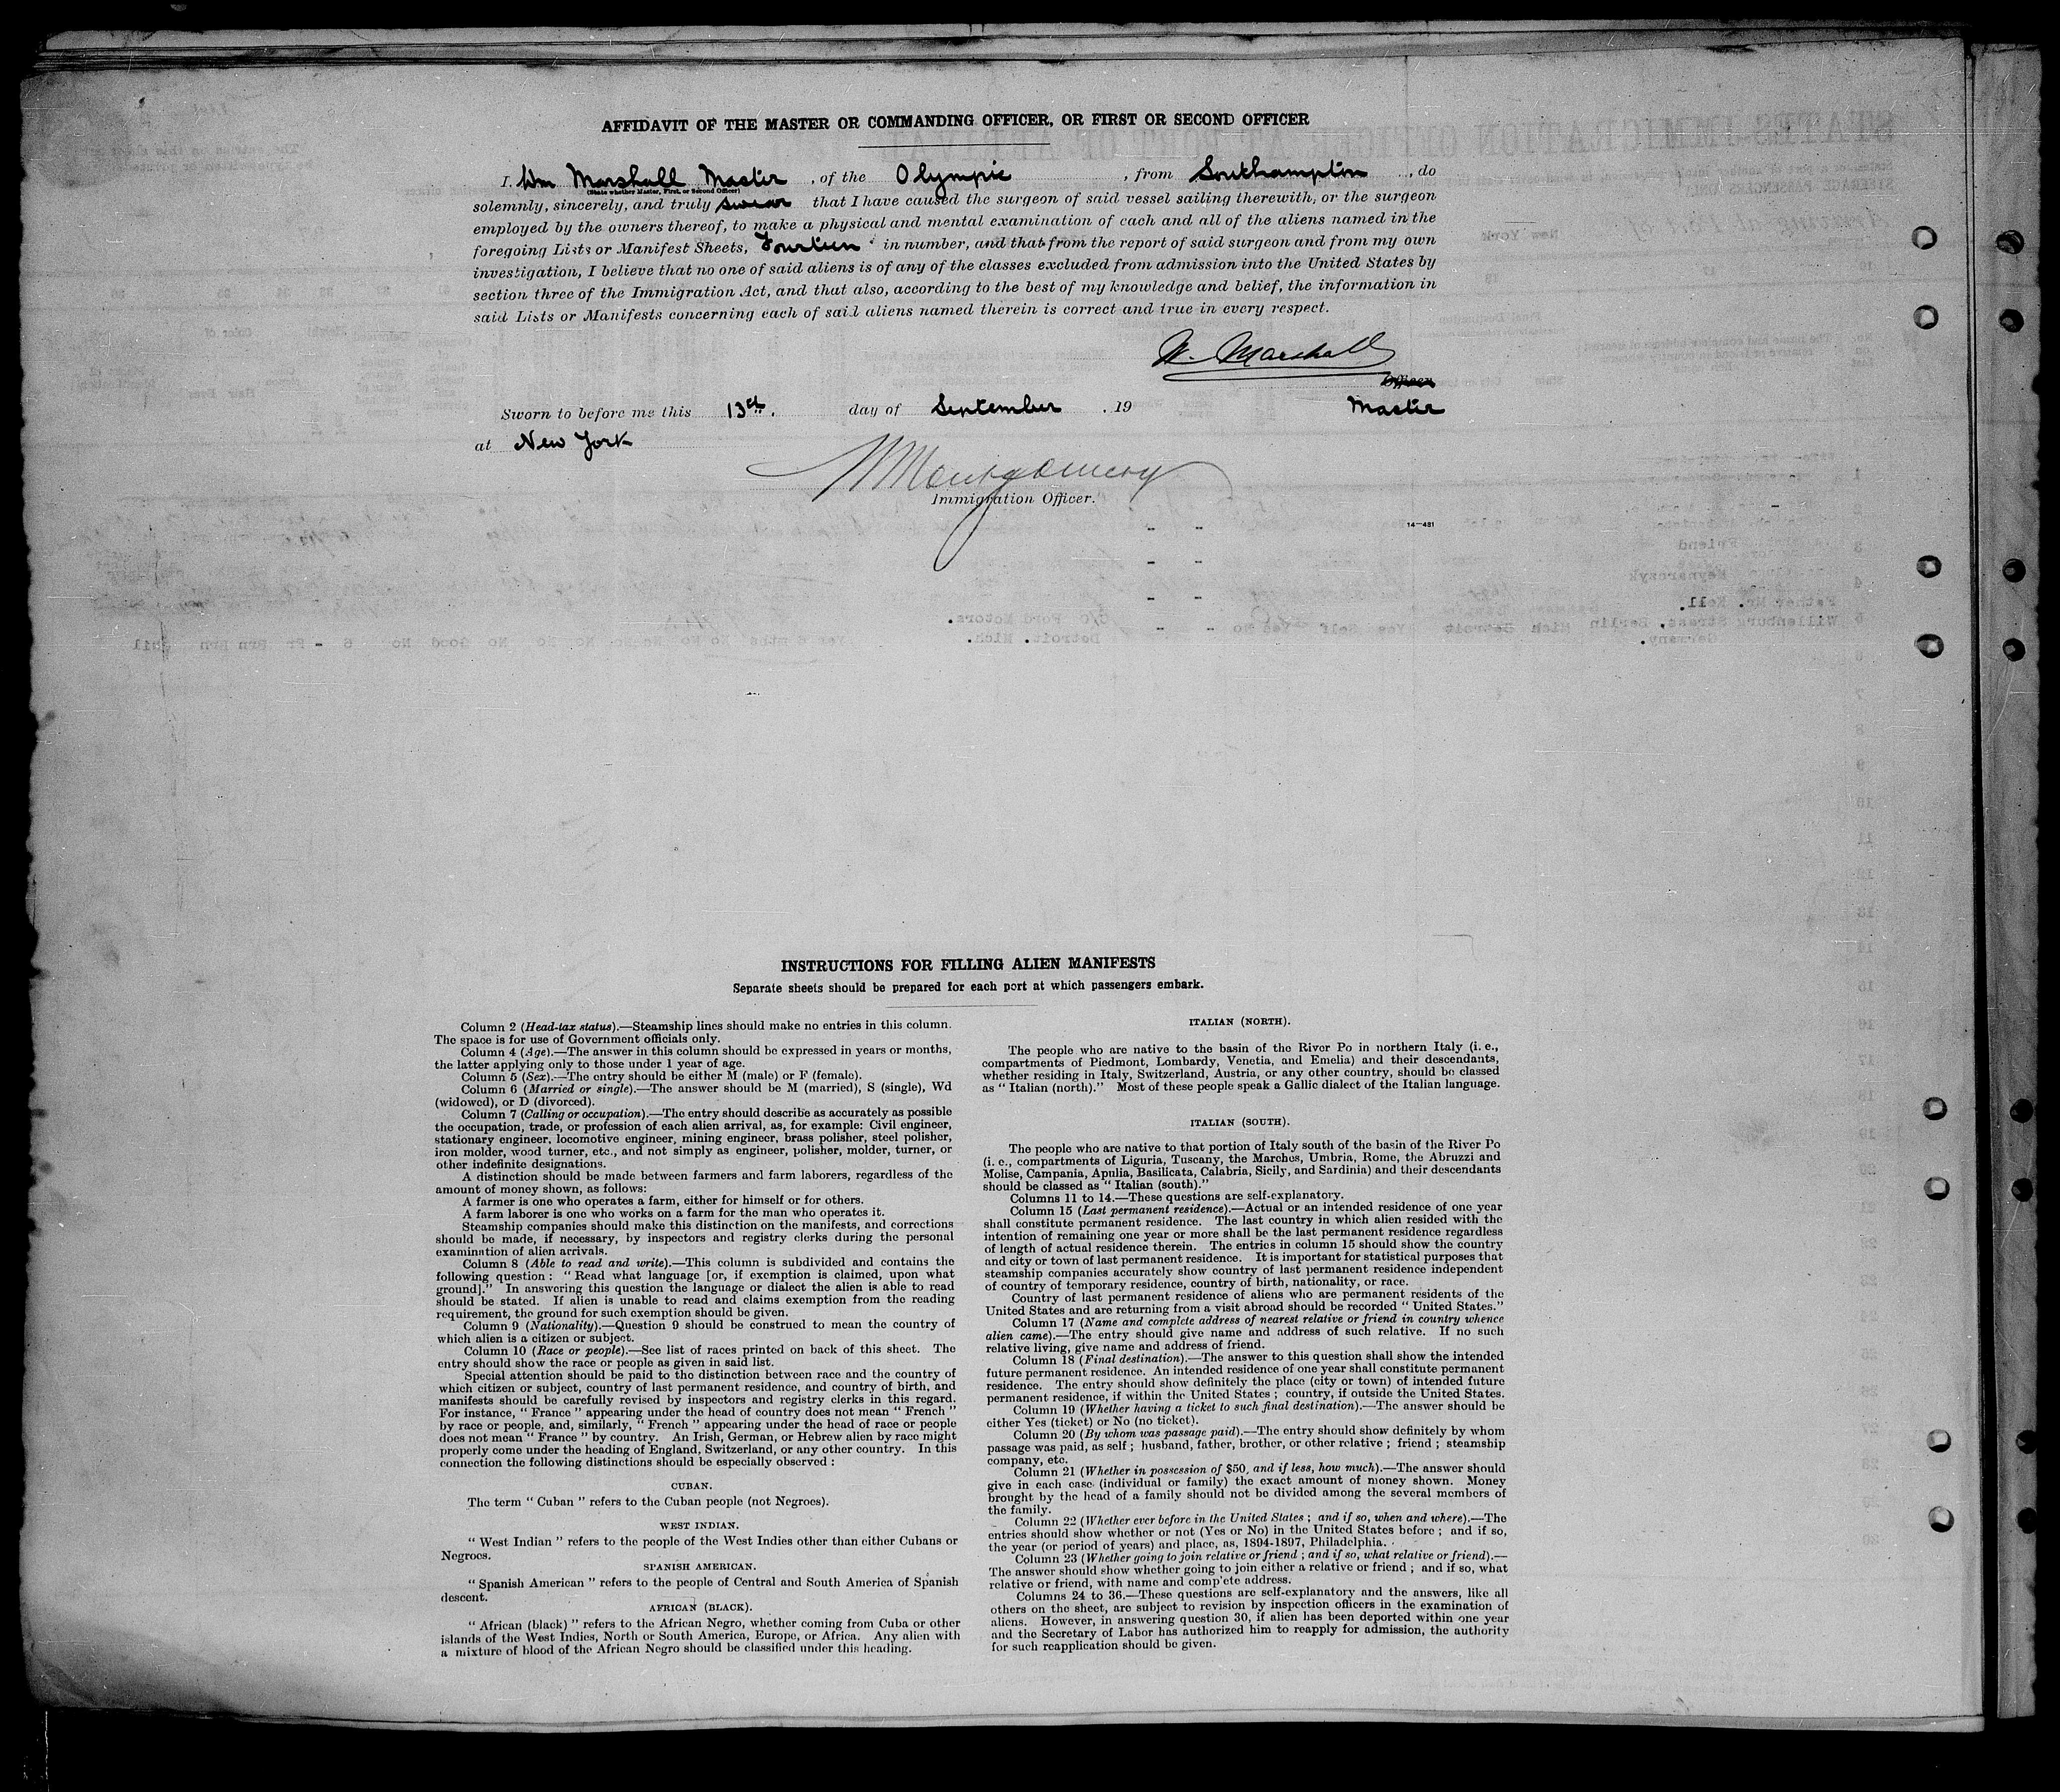 AFFIDAVIT OF THE MASTER OR COMMANDING OFFICER, OR FIRST OR SECOND OFFICER
I, Wm Marshall Master , of the Olympic , from Southampton , do
(State whether Master, First, or Second Officer)
solemnly, sincerely, and truly swear that I have caused the surgeon of said vessel sailing therewith, or the surgeon
employed by the owners thereof, to make a physical and mental examination of each and all of the aliens named in the
foregoing Lists or Manifest Sheets, Fourteen in number, and that from the report of said surgeon and from my own
investigation, I believe that no one of said aliens is of any of the classes excluded from admission into the United States by
section three of the Immigration Act, and that also, according to the best of my knowledge and belief, the information in
said Lists or Manifests concerning each of said aliens named therein is correct and true in every respect.
W. Marshall
Officer
Sworn to before me this 13th. day of September , 19 Master
at New York
Montgomery
Immigration Officer.
14—481
INSTRUCTIONS FOR FILLING ALIEN MANIFESTS
Separate sheets should be prepared for each port at which passengers embark.
Column 2 (Head-tax status).—Steamship lines should make no entries in this column.
The space is for use of Government officials only.
Column 4 (Age).—The answer in this column should be expressed in years or months,
the latter applying only to those under 1 year of age.
Column 5 (Sex).—The entry should be either M (male) or F (female).
Column 6 (Married or single).—The answer should be M (married), S (single), Wd
(widowed), or D (divorced).
Column 7 (Calling or occupation).—The entry should describe as accurately as possible
the occupation, trade, or profession of each alien arrival, as, for example: Civil engineer,
stationary engineer, locomotive engineer, mining engineer, brass polisher, steel polisher,
iron molder, wood turner, etc., and not simply as engineer, polisher, molder, turner, or
other indefinite designations.
A distinction should be made between farmers and farm laborers, regardless of the
amount of money shown, as follows:
A farmer is one who operates a farm, either for himself or for others.
A farm laborer is one who works on a farm for the man who operates it.
Steamship companies should make this distinction on the manifests, and corrections
should be made, if necessary, by inspectors and registry clerks during the personal
examination of alien arrivals.
Column 8 (Able to read and write).—This column is subdivided and contains the
following question : “ Read what language [or, if exemption is claimed, upon what
ground].” In answering this question the language or dialect the alien is able to read
should be stated. If alien is unable to read and claims exemption from the reading
requirement, the ground for such exemption should be given.
Column 9 (Nationality).—Question 9 should be construed to mean the country of
which alien is a citizen or subject.
Column 10 (Race or people).—See list of races printed on back of this sheet. The
entry should show the race or people as given in said list.
Special attention should be paid to the distinction between race and the country of
which citizen or subject, country of last permanent residence, and country of birth, and
manifests should be carefully revised by inspectors and registry clerks in this regard.
For instance, “ France ” appearing under the head of country does not mean “ French ”
by race or people, and, similarly, “ French ” appearing under the head of race or people
does not mean “ France ” by country. An Irish, German, or Hebrew alien by race might
properly come under the heading of England, Switzerland, or any other country. In this
connection the following distinctions should be especially observed :
CUBAN.
The term “ Cuban ” refers to the Cuban people (not Negroes).
WEST INDIAN.
“ West Indian ” refers to the people of the West Indies other than either Cubans or
Negroes.
SPANISH AMERICAN.
“ Spanish American ” refers to the people of Central and South America of Spanish
descent.
AFRICAN (BLACK).
“ African (black) ” refers to the African Negro, whether coming from Cuba or other
islands of the West Indies, North or South America, Europe, or Africa. Any alien with
a mixture of blood of the African Negro should be classified under this heading.
ITALIAN (NORTH).
The people who are native to the basin of the River Po in northern Italy (i. e.,
compartments of Piedmont, Lombardy, Venetia, and Emelia) and their descendants,
whether residing in Italy, Switzerland, Austria, or any other country, should be classed
as “ Italian (north).” Most of these people speak a Gallic dialect of the Italian language.
ITALIAN (SOUTH).
The people who are native to that portion of Italy south of the basin of the River Po
(i. e., compartments of Liguria, Tuscany, the Marches, Umbria, Rome, the Abruzzi and
Molise, Campania, Apulia, Basilicata, Calabria, Sicily, and Sardinia) and their descendants
should be classed as “ Italian (south).”
Columns 11 to 14.—These questions are self-explanatory.
Column 15 (Last permanent residence).—Actual or an intended residence of one year
shall constitute permanent residence. The last country in which alien resided with the
intention of remaining one year or more shall be the last permanent residence regardless
of length of actual residence therein. The entries in column 15 should show the country
and city or town of last permanent residence. It is important for statistical purposes that
steamship companies accurately show country of last permanent residence independent
of country of temporary residence, country of birth, nationality, or race.
Country of last permanent residence of aliens who are permanent residents of the
United States and are returning from a visit abroad should be recorded “ United States.”
Column 17 (Name and complete address of nearest relative or friend in country whence
alien came).—The entry should give name and address of such relative. If no such
relative living, give name and address of friend.
Column 18 (Final destination).—The answer to this question shall show the intended
future permanent residence. An intended residence of one year shall constitute permanent
residence. The entry should show definitely the place (city or town) of intended future
permanent residence, if within the United States ; country, if outside the United States.
Column 19 (Whether having a ticket to such final destination).—The answer should be
either Yes (ticket) or No (no ticket).
Column 20 (By whom was passage paid).—The entry should show definitely by whom
passage was paid, as self ; husband, father, brother, or other relative ; friend ; steamship
company, etc.
Column 21 (Whether in possession of $50, and if less, how much).—The answer should
give in each case (individual or family) the exact amount of money shown. Money
brought by the head of a family should not be divided among the several members of
the family.
Column 22 (Whether ever before in the United States ; and if so, when and where).—The
entries should show whether or not (Yes or No) in the United States before ; and if so,
the year (or period of years) and place, as, 1894-1897, Philadelphia.
Column 23 (Whether going to join relative or friend ; and if so, what relative or friend).—
The answer should show whether going to join either a relative or friend ; and if so, what
relative or friend, with name and complete address.
Columns 24 to 36.—These questions are self-explanatory and the answers, like all
others on the sheet, are subject to revision by inspection officers in the examination of
aliens. However, in answering question 30, if alien has been deported within one year
and the Secretary of Labor has authorized him to reapply for admission, the authority
for such reapplication should be given.